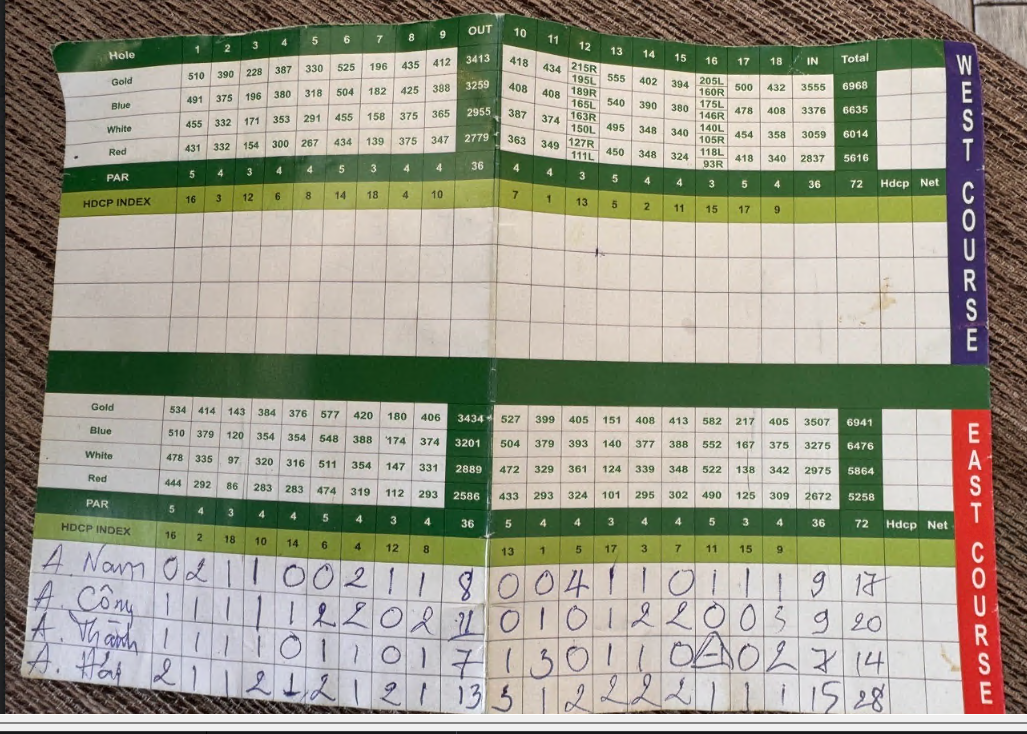 Hole 1 2 3 4 5 6 7 8 9 OUT 10 11 12 13 14 15 16 17 18 IN Total
Gold 510 390 228 387 330 525 196 435 412 3413 418 434 215R 195L 555 402 394 205L 160R 500 432 3555 6968
Blue 491 375 196 380 318 504 182 425 388 3259 408 408 189R 165L 540 390 380 175L 146R 478 408 3376 6635
White 455 332 171 353 291 455 158 375 365 2955 387 374 163R 150L 495 348 340 140L 105R 454 358 3059 6014
Red 431 332 154 300 267 434 139 375 347 2779 363 349 127R 111L 450 348 324 118L 93R 418 340 2837 5616
PAR 5 4 3 4 4 5 3 4 4 36 4 4 3 5 4 4 3 5 4 36 72 Hdcp Net
HDCP INDEX 16 3 12 6 8 14 18 4 10 7 1 13 5 2 11 15 17 9
WEST COURSE
Gold 534 414 143 384 376 577 420 180 406 3434 527 399 405 151 408 413 582 217 405 3507 6941
Blue 510 379 120 354 354 548 388 174 374 3201 504 379 393 140 377 388 552 167 375 3275 6476
White 478 335 97 320 316 511 354 147 331 2889 472 329 361 124 339 348 522 138 342 2975 5864
Red 444 292 86 283 283 474 319 112 293 2586 433 293 324 101 295 302 490 125 309 2672 5258
PAR 5 4 3 4 4 5 4 3 4 36 5 4 4 3 4 4 5 3 4 36 72 Hdcp Net
HDCP INDEX 16 2 18 10 14 6 4 12 8 13 1 5 17 3 7 11 15 9
A. Nam 0 2 1 1 0 0 2 1 1 8 0 0 4 1 1 0 1 1 1 9 17
A. Công 1 1 1 1 1 2 2 0 2 11 0 1 0 1 2 2 0 0 3 9 20
A. Thành 1 1 1 1 0 1 1 0 1 7 1 3 0 1 1 0 0 2 7 14
A. 2 1 1 2 1 2 1 2 1 13 3 1 2 2 2 2 1 1 1 15 28
EAST COURSE